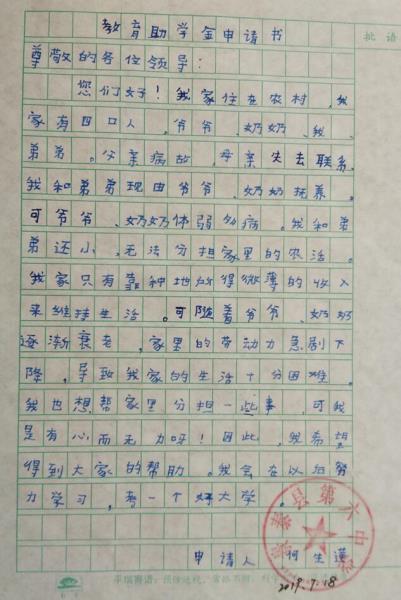 教育助学金申请书
批语
尊敬的各位领导：
您们好！我家住在农村，我
家有四口人，爷爷、奶奶、我、
弟弟。父亲病故，母亲失去联系。
我和弟弟现由爷爷、奶奶抚养。
可爷爷、奶奶体弱多病。我和弟
弟还小，无法分担家里的农活。
我家只有靠种地所得微薄的收入
来维持生活。可随着爷爷、奶奶
逐渐衰老，家里的劳动力急剧下
降，导致我家的生活十分困难。
我也想帮家里分担一些事，可我
是有心而无力呀！因此，我希望
得到大家的帮助。我会在以后努
力学习，考一个好大学。
县第六中
申请人 何生莲
2019.7.18